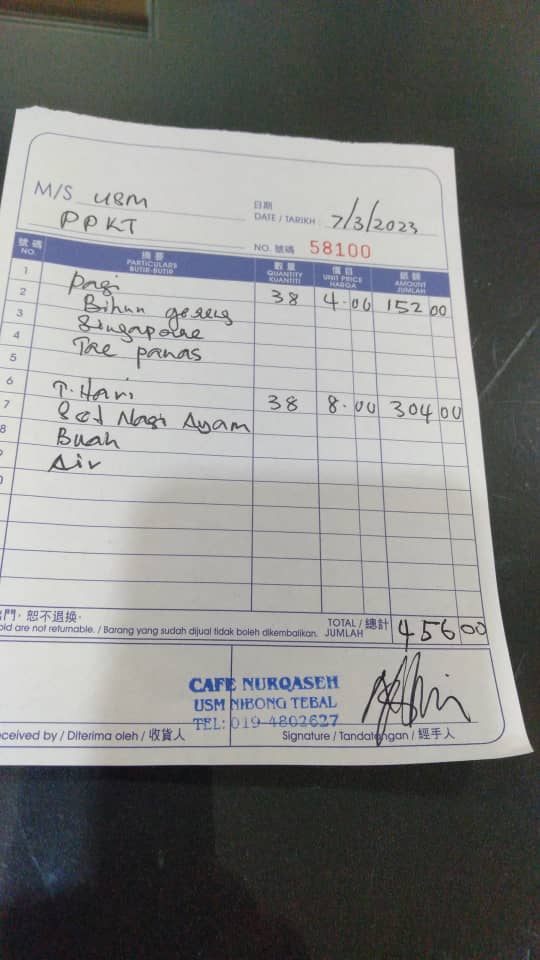 M/S USM
日期
DATE / TARIKH : 7/3/2023
PPKT
NO. 號碼 58100
號碼 摘要 數量 價目 銀額
NO. PARTICULARS QUANTITY UNIT PRICE AMOUNT
BUTIR-BUTIR KUANTITI HARGA JUMLAH
1 Pagi 38 4.00 152 00
2 Bihun goreng
3 Singapore
4 Tee panas
5
6 T. Hari
7 Set Nasi Ayam 38 8.00 304 00
8 Buah
Air
出門，恕不退換。
old are not returnable. / Barang yang sudah dijual tidak boleh dikembalikan.
TOTAL / 總計 456 00
JUMLAH
CAFE NURQASEH
USM NIBONG TEBAL
TEL: 019-4802627
eceived by / Diterima oleh / 收貨人
Signature / Tandatangan / 經手人